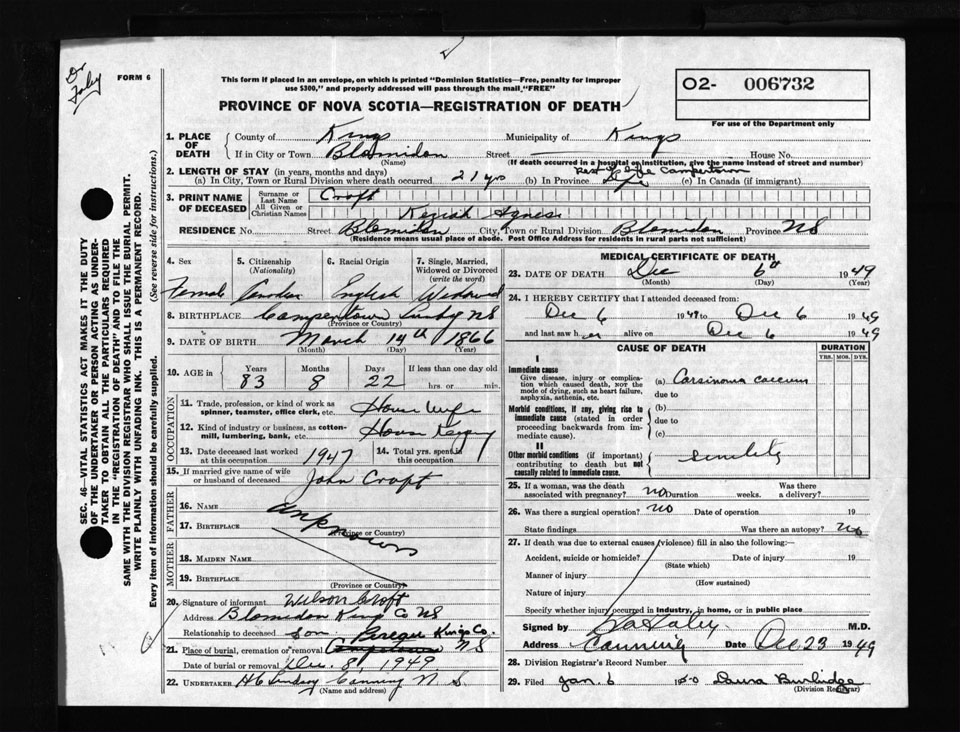 Dr Foley
FORM 6
This form if placed in an envelope, on which is printed "Dominion Statistics—Free, penalty for improper
use $300," and properly addressed will pass through the mail "FREE"
PROVINCE OF NOVA SCOTIA—REGISTRATION OF DEATH
O2- 006732
For use of the Department only
SEC. 46—VITAL STATISTICS ACT MAKES IT THE DUTY
OF THE UNDERTAKER OR PERSON ACTING AS UNDER-
TAKER TO OBTAIN ALL THE PARTICULARS REQUIRED
IN THE "REGISTRATION OF DEATH" AND TO FILE THE
SAME WITH THE DIVISION REGISTRAR WHO SHALL ISSUE THE BURIAL PERMIT.
WRITE PLAINLY WITH UNFADING INK. THIS IS A PERMANENT RECORD.
Every item of information should be carefully supplied. (See reverse side for instructions.)
1. PLACE OF DEATH
County of Kings Municipality of Kings
If in City or Town Blomidon Street House No.
(Name) (If death occurred in a hospital or institution, give the name instead of street and number)
2. LENGTH OF STAY (in years, months and days) Rest of life Campertown
(a) In City, Town or Rural Division where death occurred 21 yrs (b) In Province Life (c) In Canada (if immigrant)
3. PRINT NAME OF DECEASED
Surname or Last Name Croft
All Given or Christian Names Keziah Agnes
RESIDENCE No. Street Blomidon City, Town or Rural Division Blomidon Province NS
(Residence means usual place of abode. Post Office Address for residents in rural parts not sufficient)
4. Sex 5. Citizenship (Nationality) 6. Racial Origin 7. Single, Married, Widowed or Divorced (write the word)
Female Canadian English Widowed
8. BIRTHPLACE Campertown Lunbg NS
(Province or Country)
9. DATE OF BIRTH March 14th 1866
(Month) (Day) (Year)
10. AGE in Years Months Days If less than one day old
83 8 22 hrs. or min.
OCCUPATION
11. Trade, profession, or kind of work as spinner, teamster, office clerk, etc. House Wife
12. Kind of industry or business, as cotton-mill, lumbering, bank, etc. House Keeping
13. Date deceased last worked at this occupation 1947 14. Total yrs. spent in this occupation
15. If married give name of wife or husband of deceased John Croft
FATHER
16. NAME unknown
17. BIRTHPLACE
(Province or Country)
MOTHER
18. MAIDEN NAME
19. BIRTHPLACE
(Province or Country)
20. Signature of informant Wilson Croft
Address Blomidon King Co NS
Relationship to deceased Son Pereau Kings Co.
21. Place of burial, cremation or removal Campertown NS
Date of burial or removal Dec. 8, 1949
22. UNDERTAKER H C Lindsay Canning N. S.
(Name and address)
MEDICAL CERTIFICATE OF DEATH
23. DATE OF DEATH Dec 6th 1949
(Month) (Day) (Year)
24. I HEREBY CERTIFY that I attended deceased from:
Dec 6 1949 to Dec 6 1949
and last saw her alive on Dec 6 1949
CAUSE OF DEATH DURATION
YRS. MOS. DYS.
I
Immediate cause
Give disease, injury or complication which caused death, NOT the mode of dying, such as heart failure, asphyxia, asthenia, etc.
(a) Carsinoma caecum
due to
Morbid conditions, if any, giving rise to immediate cause (stated in order proceeding backwards from immediate cause).
(b)
due to
(c)
II
Other morbid conditions (if important) contributing to death but not causally related to immediate cause.
senility
25. If a woman, was the death associated with pregnancy? no Duration weeks. Was there a delivery?
26. Was there a surgical operation? no Date of operation 19
State findings Was there an autopsy? No
27. If death was due to external causes (violence) fill in also the following:—
Accident, suicide or homicide? Date of injury 19
(State which)
Manner of injury
(How sustained)
Nature of injury
Specify whether injury occurred in industry, in home, or in public place
Signed by M.D.
Address Canning Date Dec 23 1949
28. Division Registrar's Record Number
29. Filed Jan. 6 1950 Laura Burbidge
(Division Registrar)